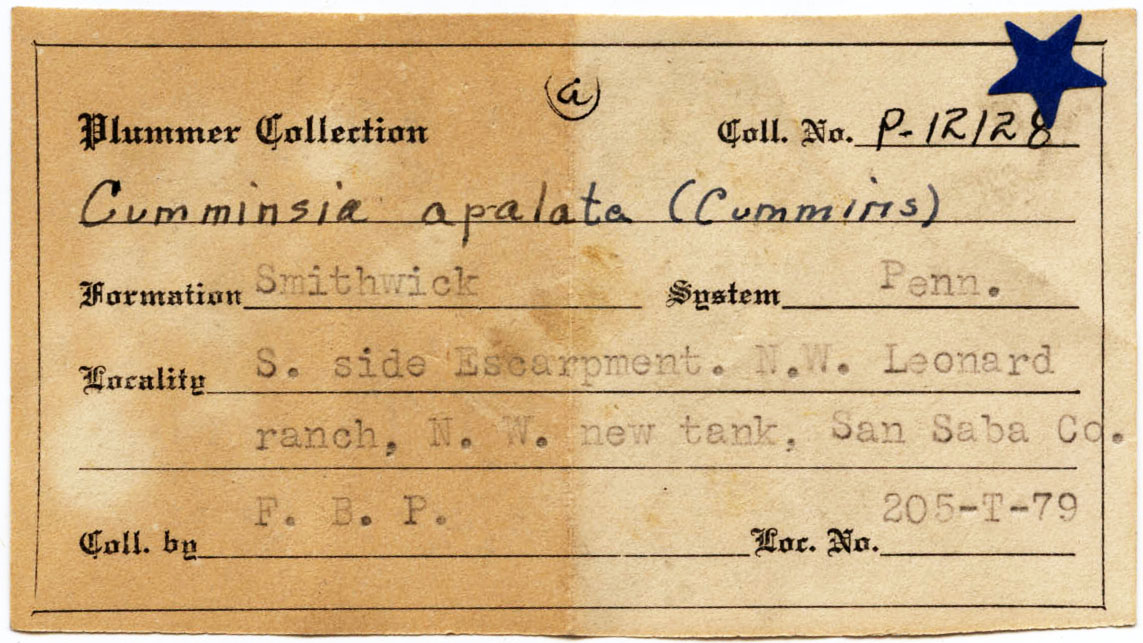 a
Plummer Collection Coll. No. P-12128
Cumminsia apalata (Cummins)
Formation Smithwick System Penn.
Locality S. side Escarpment. N.W. Leonard
ranch, N. W. new tank, San Saba Co.
Coll. by F. B. P. Loc. No. 205-T-79